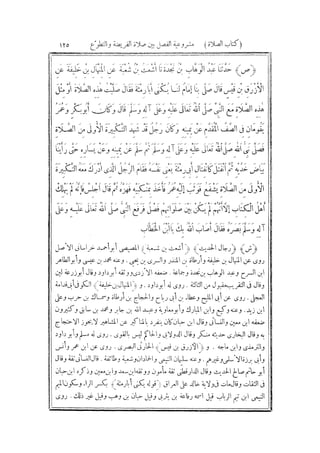 (كتاب الصلاة) مشروعية الفصل بين صلاة الفريضة والتطوع ١٢٥
(ص) حَدَّثَنَا عَبْدُ الْوَهَّابِ بْنُ نَجْدَةَ نَا أَشْعَثُ بْنُ شُعْبَةَ عَنِ الْمِنْهَالِ بْنِ خَلِيفَةَ عَنِ
الْأَزْرَقِ بْنِ قَيْسٍ قَالَ صَلَّى بِنَا إِمَامٌ لَنَا يُكْنَى أَبَا رِمْثَةَ فَقَالَ صَلَّيْتُ هَذِهِ الصَّلَاةَ أَوْ مِثْلَ
هَذِهِ الصَّلَاةِ مَعَ النَّبِيِّ صَلَّى اللَّهُ تَعَالَى عَلَيْهِ وَعَلَى آلِهِ وَسَلَّمَ قَالَ وَكَانَ أَبُو بَكْرٍ وَعُمَرُ
يَقُومَانِ فِي الصَّفِّ الْمُقَدَّمِ عَنْ يَمِينِهِ وَكَانَ رَجُلٌ قَدْ شَهِدَ التَّكْبِيرَةَ الْأُولَى مِنَ الصَّلَاةِ
فَصَلَّى نَبِيُّ اللَّهِ صَلَّى اللَّهُ تَعَالَى عَلَيْهِ وَعَلَى آلِهِ وَسَلَّمَ ثُمَّ سَلَّمَ عَنْ يَمِينِهِ وَعَنْ يَسَارِهِ حَتَّى رَأَيْنَا
بَيَاضَ خَدَّيْهِ ثُمَّ انْفَتَلَ كَانْفِتَالِ أَبِي رِمْثَةَ يَعْنِي نَفْسَهُ فَقَامَ الرَّجُلُ الَّذِي أَدْرَكَ مَعَهُ التَّكْبِيرَةَ
الْأُولَى مِنَ الصَّلَاةِ يَشْفَعُ فَوَثَبَ إِلَيْهِ عُمَرُ فَأَخَذَ بِمَنْكِبِهِ فَهَزَّهُ ثُمَّ قَالَ اجْلِسْ فَإِنَّهُ لَمْ يُهْلِكْ
أَهْلَ الْكِتَابِ إِلَّا أَنَّهُمْ لَمْ يَكُنْ بَيْنَ صَلَوَاتِهِمْ فَصْلٌ فَرَفَعَ النَّبِيُّ صَلَّى اللَّهُ تَعَالَى عَلَيْهِ وَعَلَى
آلِهِ وَسَلَّمَ بَصَرَهُ فَقَالَ أَصَابَ اللَّهُ بِكَ يَا ابْنَ الْخَطَّابِ
(ش) (رجال الحديث) (أشعث بن شعبة) المصيصي أبو أحمد خراساني الأصل
روى عن المنهال بن خليفة وأرطاة بن المنذر والسري بن يحيى. وعنه محمد بن عيسى وأبو الطاهر
ابن السرح وعبد الوهاب بن نجدة وجماعة. ضعفه الأزدي ووثقه أبو داود وقال أبو زرعة لين
وقال في التقريب مقبول من الثالثة. روى له أبو داود. و (المنهال بن خليفة) الكوفي أبي قدامة
العجلي. روى عن أبي المليح وعطاء بن أبي رباح والحجاج بن أرطاة وسماك بن حرب وعلي
ابن زيد. وعنه وكيع وابن المبارك وأبو معاوية وعبد الله بن جابر ومحمد بن سابق وكثيرون
ضعفه ابن معين والنسائي وقال ابن حبان كان ينفرد بالمناكير عن المشاهير لا يجوز الاحتجاج
به وقال البخاري حديثه منكر وقال الدولابي والحاكم ليس بالقوى. روى له مسلم وأبو داود
والترمذي وابن ماجه. و (الأزرق بن قيس) الحارثي البصري. روى عن ابن عمر وأنس
وأبي برزة الأسلمي وغيرهم. وعنه سليمان التيمي والحمادان وشعبة وطائفة. قال النسائي ثقة وقال
أبو حاتم صالح الحديث وقال الدارقطني ثقة مأمون ووثقه ابن سعد وابن معين وذكره ابن حبان
في الثقات وقال مات في ولاية خالد على العراق (قوله يكنى أبا رمثة) بكسر الراء وسكون الميم
التيمى ابن تيم الرباب قيل اسمه رفاعة بن يثربي وقيل حيان بن وهب وقيل غير ذلك. روى